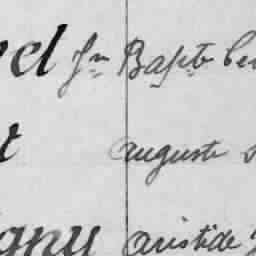 el Jn Bapte
t auguste
gny aristide